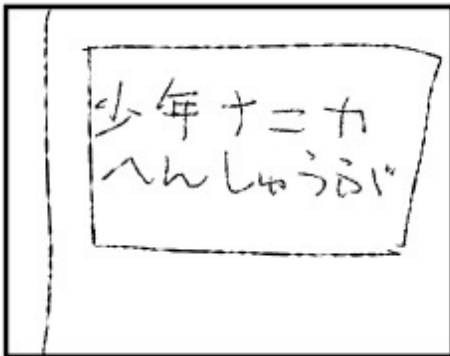 少年ナニカ
へんしゅうぶ